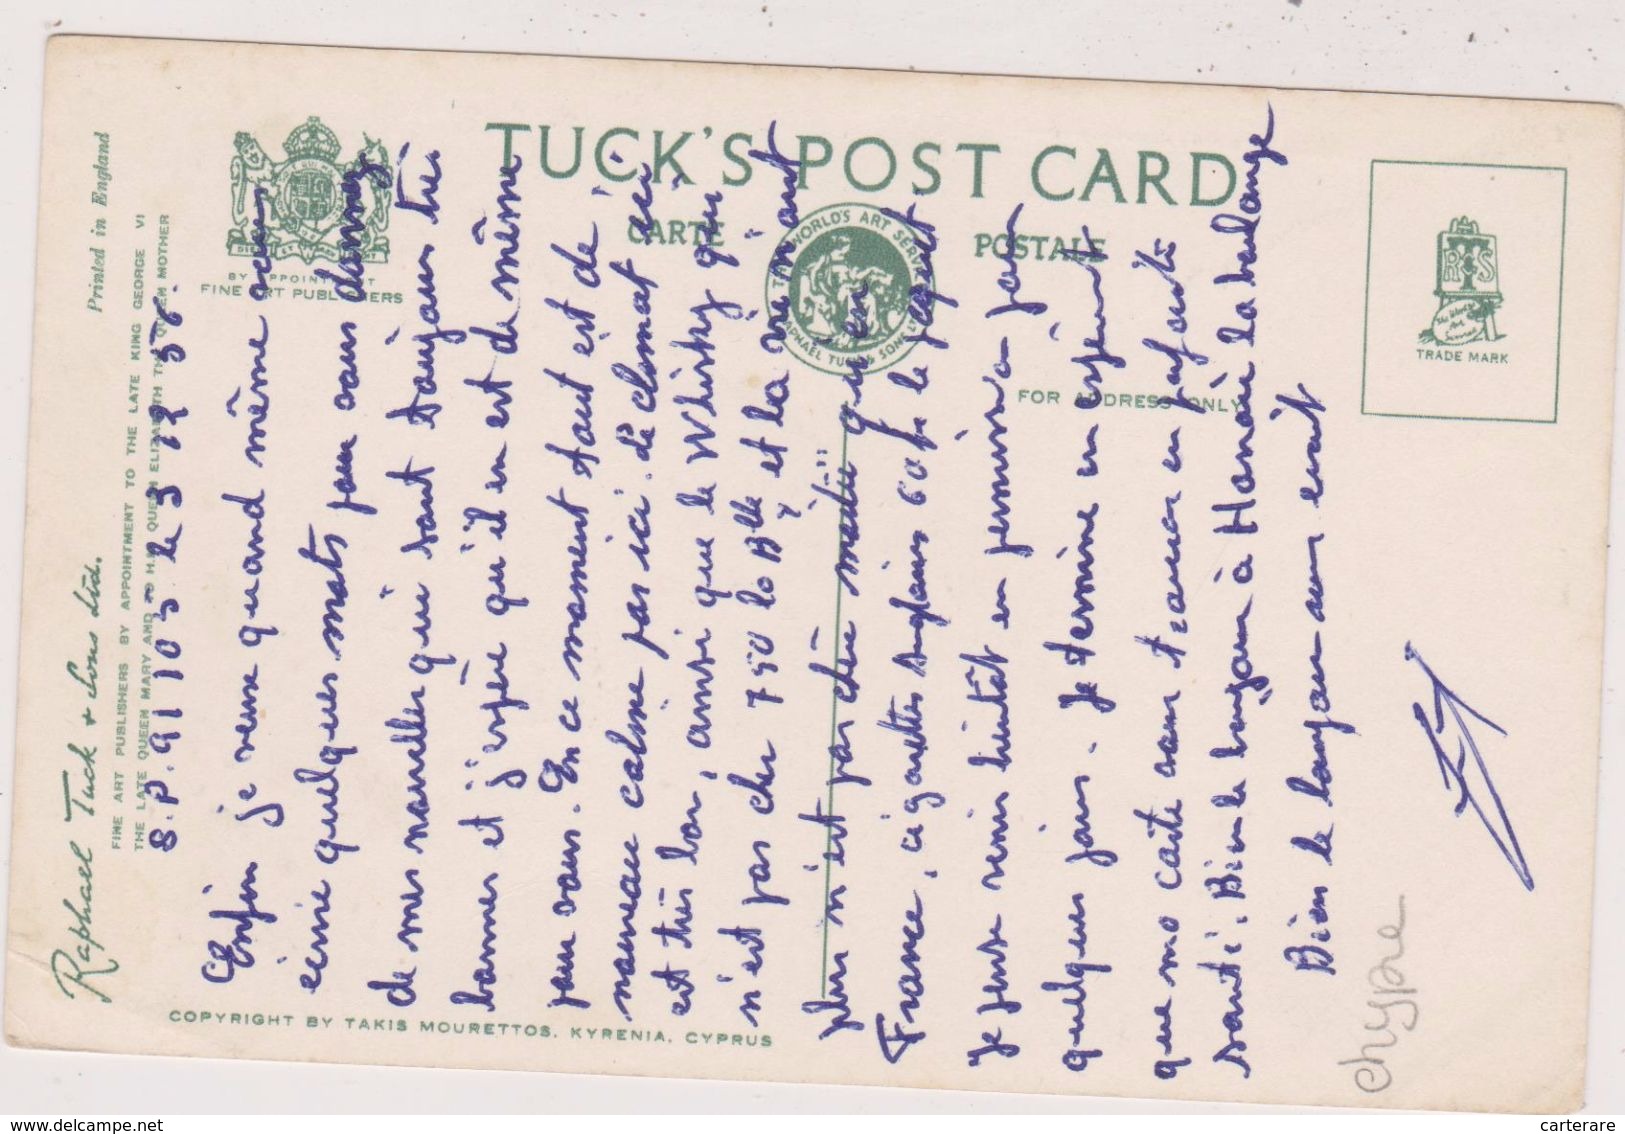 Raphael Tuck & Sons Ltd.
Printed in England
FINE ART PUBLISHERS BY APPOINTMENT TO THE LATE KING GEORGE VI
THE LATE QUEEN MARY AND TO H.M. QUEEN ELIZABETH THE QUEEN MOTHER
BY APPOINTMENT
FINE ART PUBLISHERS
TUCK'S POST CARD
CARTE POSTALE
THE WORLD'S ART SERVICE
RAPHAEL TUCK & SONS LTD
FOR ADDRESS ONLY
TRADE MARK
COPYRIGHT BY TAKIS MOURETTOS. KYRENIA. CYPRUS
S.P. 91 103 le 3 12 56.
Enfin je veux quand même vous
écrire quelques mots pour vous donnez
de mes nouvelles qui sont toujours très
bonnes et j'espère qu'il en est de même
pour vous. En ce moment tout est de
nouveau calme par ici. Le climat ici
est très bon, ainsi que le Whisky qui
n'est pas cher 750 la Blle et la vie non
plus n'est pas chère mieux qu'en
France, cigarettes Anglaises 60 fr le paquet
Je pense venir bientôt en permission pour
quelques jours. Je termine en espérant
que ma carte vous trouve en parfaite
santé. Bien le bonjour à Honoré la boulange
Bien le bonjour au
chypre
delcampe.net
carterare